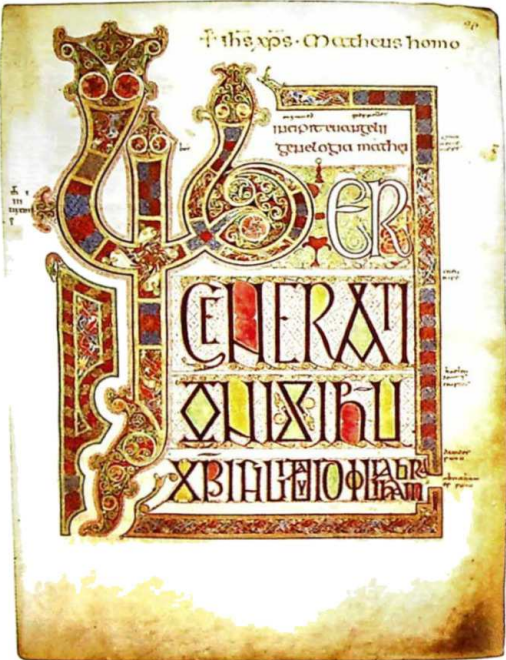 + ihs xps · Matheus homo
incipit euangelii
genelogia mathei
LIBER
GENERATI
ONIS IHU
XPI FILII DAUID FILII ABRAHAM